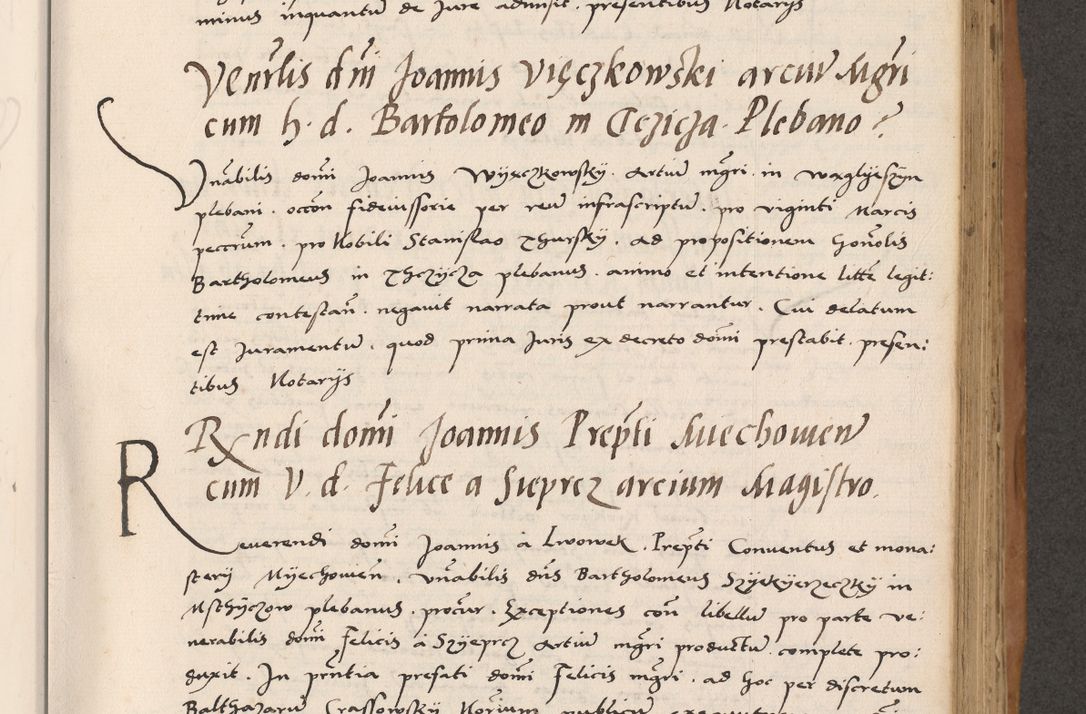 minus inquantū de Jure admisit. presentibus Notarijs
Venr̄lis dm̄i Joannis Vięczkowski arciū Mgr̄i
cum h. d. Bartolomeo in Tczicza Plebano
Vn̄abilis dom̄i Joannis Wyęczkowsky. Artiū mgr̄i. in
plebani. occōn fideiussorie per reū infrascriptū. pro viginti Marcis
peccūm. pro Nobili Stanislao Thursky. ad propositionem honōlis
Bartholomeus in Thczycza plebanus. animo et intentione litīs legit:
time contestan̄. negauit narrata prout narrantur. Cui delatum
est Juramentū. quod prima Juris ex decreto dom̄i prestabit. presen:
tibus Notarijs
Rx̄ndi dom̄i Joannis Prep̄ti Miechouien̄
cum V. d. Felice a Sieprcz arcium Magistro.
Reuerendi dom̄i Joannis à Lwowek. Prep̄ti Conuentus et mona:
sterij Myechouien̄. Vn̄abilis dn̄s Bartholomeus in
Msthyczow plebanus. procūr. Exceptiones con̄ libellū pro parte ve:
nerabilis dom̄i Felicis à Szyeprcz Artiū mgr̄i productū. complete pro:
duxit. In pn̄tia prefati dom̄i Felicis mgr̄i. ad hoc per discretum
Balthazarū Crassowsky Noriūm publicū